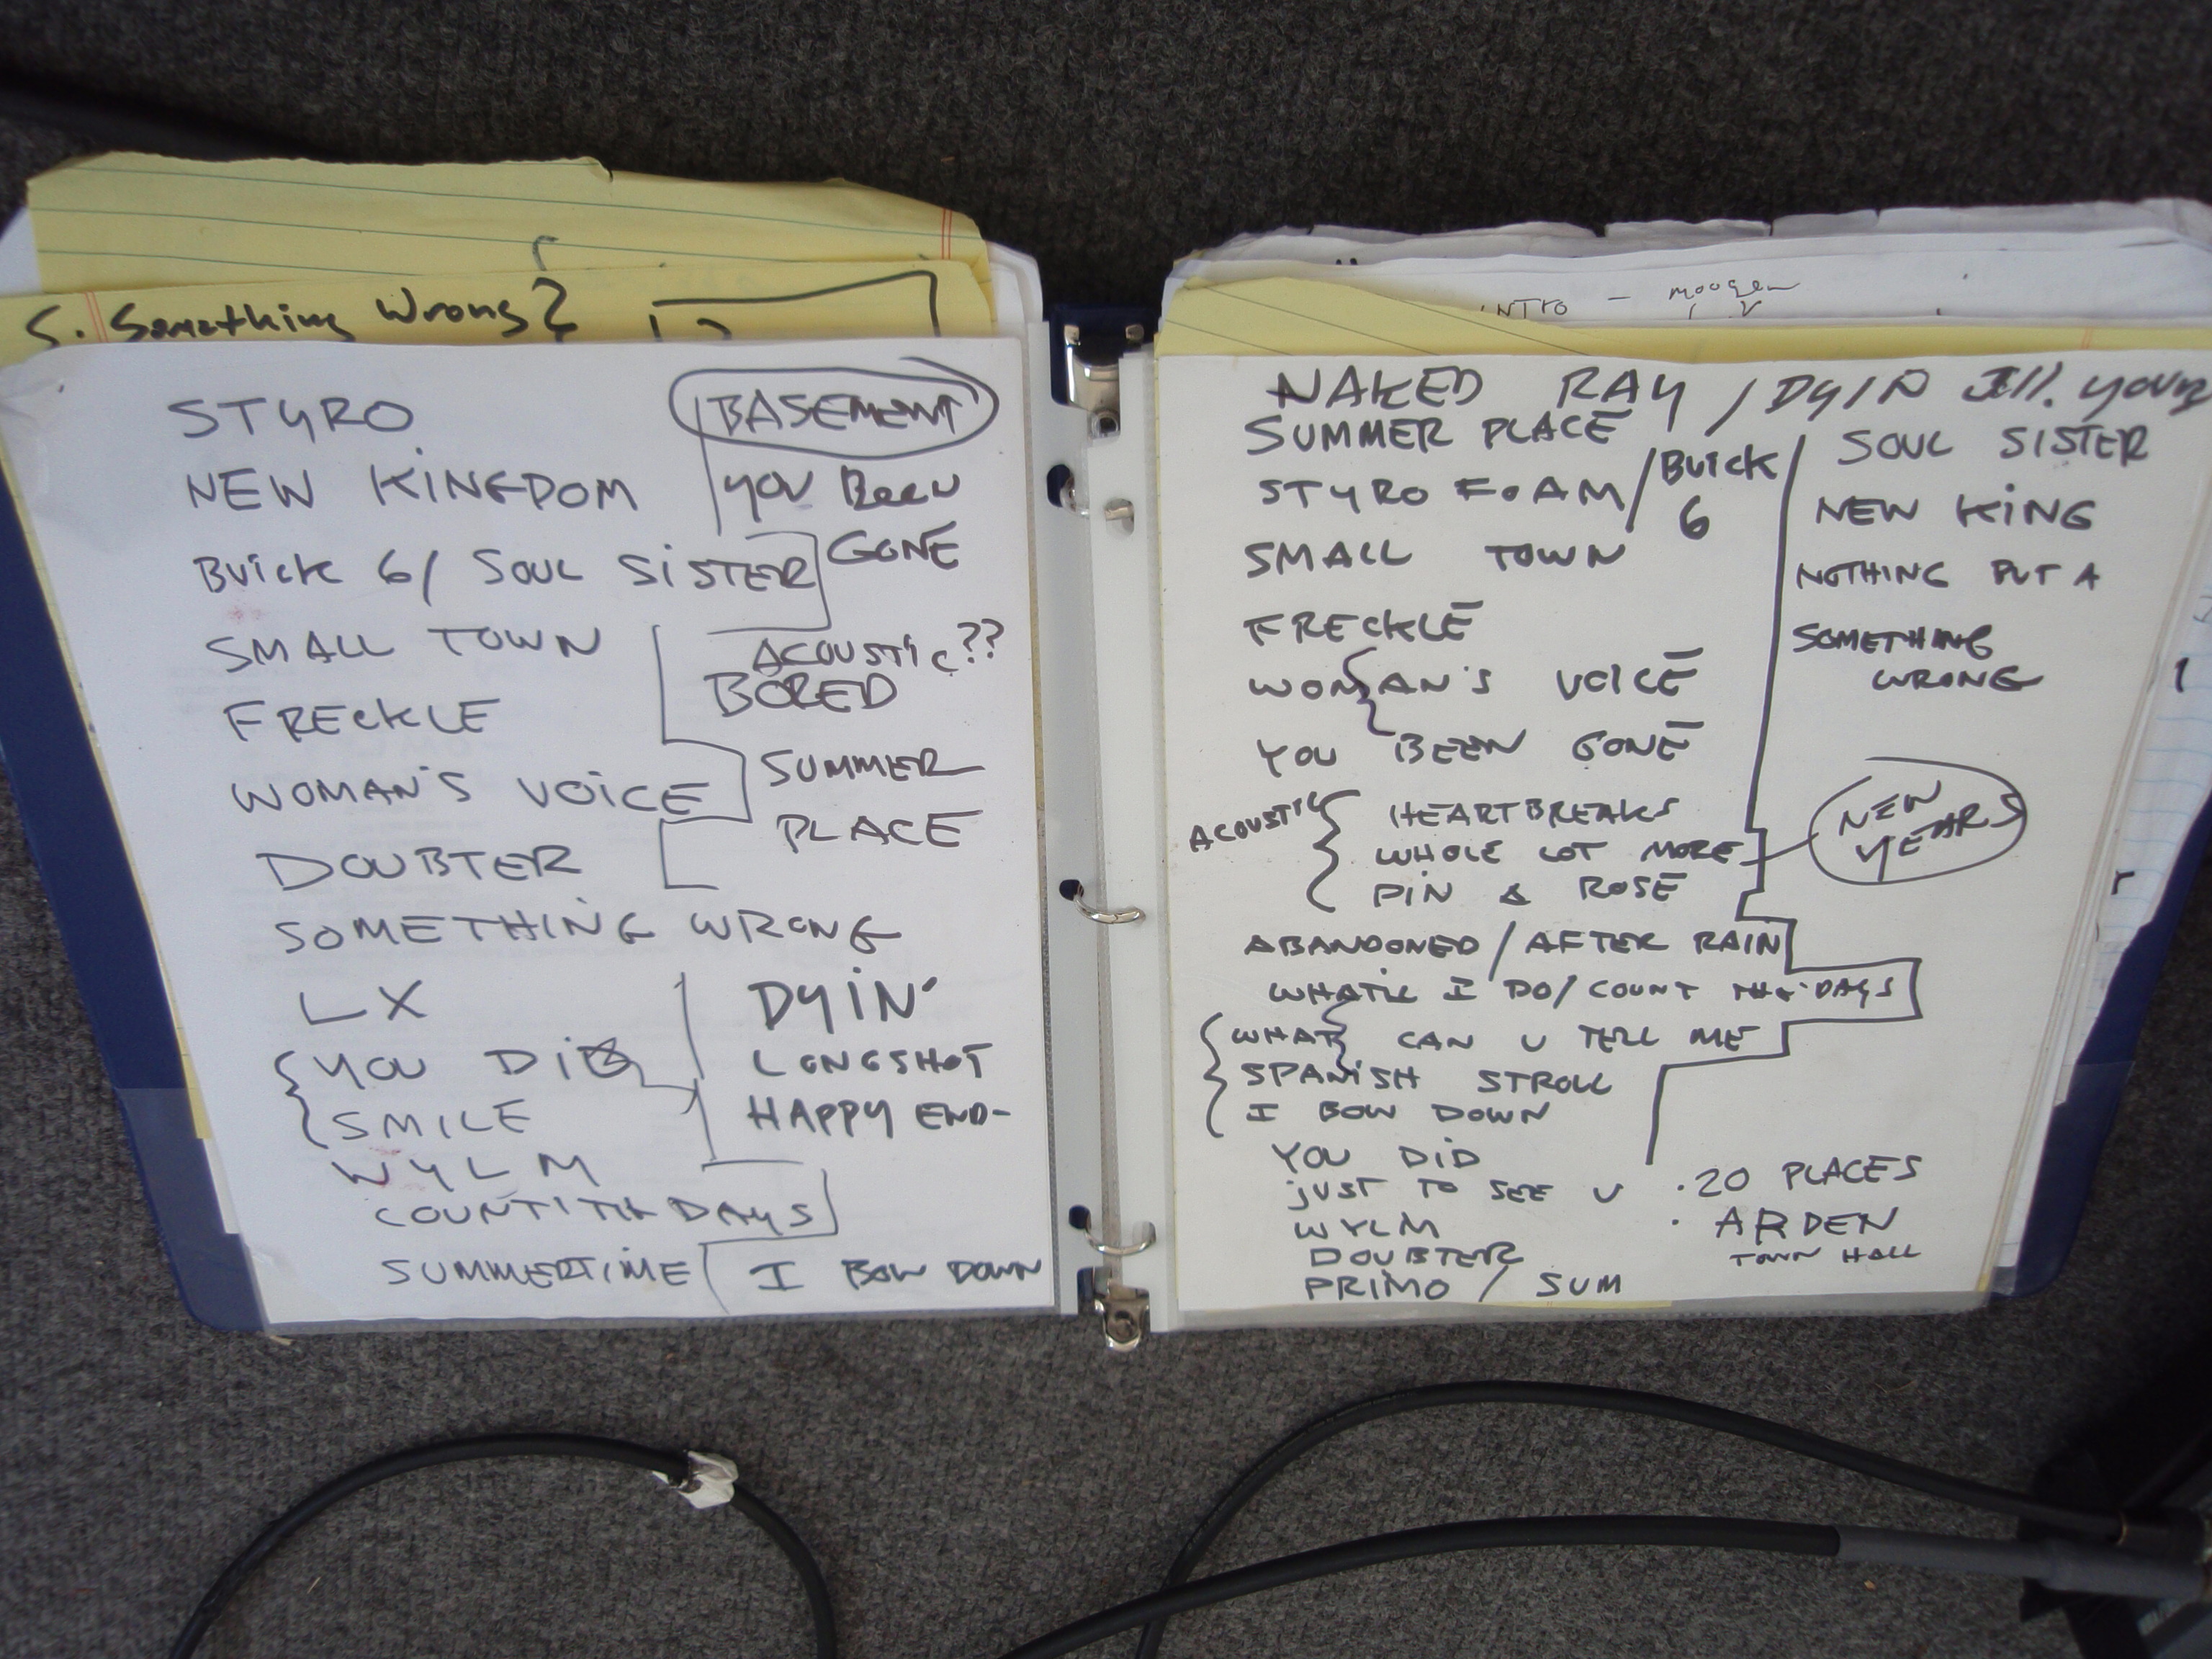 S. Something Wrong?
STYRO
NEW KINGDOM
BUICK 6/ SOUL SISTER
SMALL TOWN
FRECKLE
WOMAN'S VOICE
DOUBTER
SOMETHING WRONG
LX
YOU DID
SMILE
WYLM
COUNTITH DAYS
SUMMERTIME
BASEMENT
YOU BEEN
GONE
ACOUSTIC??
BORED
SUMMER
PLACE
DYIN'
LONGSHOT
HAPPY END-
I BOW DOWN
INTRO -
NAKED RAY / DYIN Ill. young
SUMMER PLACE
STYROFOAM / BUICK 6
SMALL TOWN
FRECKLE
WOMAN'S VOICE
YOU BEEN GONE
ACOUSTIC
HEARTBREAKS
WHOLE LOT MORE
PIN & ROSE
ABANDONED / AFTER RAIN
WHAT'LL I DO / COUNT THE DAYS
WHAT CAN U TELL ME
SPANISH STROLL
I BOW DOWN
YOU DID
JUST TO SEE U
WYLM
DOUBTER
PRIMO / SUM
SOUL SISTER
NEW KING
NOTHING BUT A
SOMETHING
WRONG
NEW
YEARS
· 20 PLACES
· ARDEN
TOWN HALL